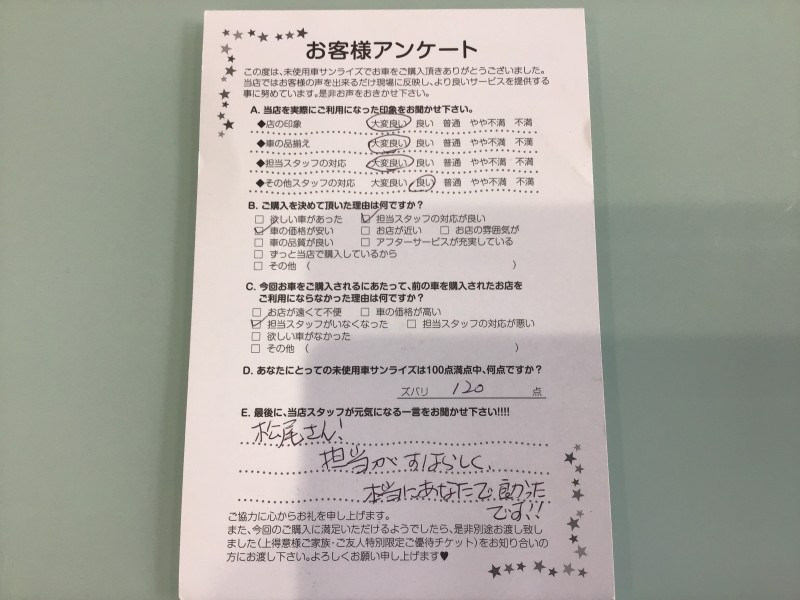 お客様アンケート
この度は、未使用車サンライズでお車をご購入頂きありがとうございました。
当店ではお客様の声を出来るだけ現場に反映し、より良いサービスを提供する
事に努めています。是非お声をおきかせ下さい。
A. 当店を実際にご利用になった印象をお聞かせ下さい。
◆店の印象 大変良い 良い 普通 やや不満 不満
◆車の品揃え 大変良い 良い 普通 やや不満 不満
◆担当スタッフの対応 大変良い 良い 普通 やや不満 不満
◆その他スタッフの対応 大変良い 良い 普通 やや不満 不満
B. ご購入を決めて頂いた理由は何ですか?
□ 欲しい車があった ☑ 担当スタッフの対応が良い
☑ 車の価格が安い □ お店が近い □ お店の雰囲気が
□ 車の品質が良い □ アフターサービスが充実している
□ ずっと当店で購入しているから
□ その他 ( )
C. 今回お車をご購入されるにあたって、前の車を購入されたお店を
ご利用にならなかった理由は何ですか?
□ お店が遠くて不便 □ 車の価格が高い
☑ 担当スタッフがいなくなった □ 担当スタッフの対応が悪い
□ 欲しい車がなかった
□ その他 ( )
D. あなたにとっての未使用車サンライズは100点満点中、何点ですか?
ズバリ 120 点
E. 最後に、当店スタッフが元気になる一言をお聞かせ下さい!!!!
松尾さん!
担当がすばらしく、
本当にあなたで良かった
です!!
ご協力に心からお礼を申し上げます。
また、今回のご購入に満足いただけるようでしたら、是非別途お渡し致し
ました(上得意様ご家族・ご友人特別限定ご優待チケット)をお知り合いの
方にお渡し下さい。よろしくお願い申し上げます♥